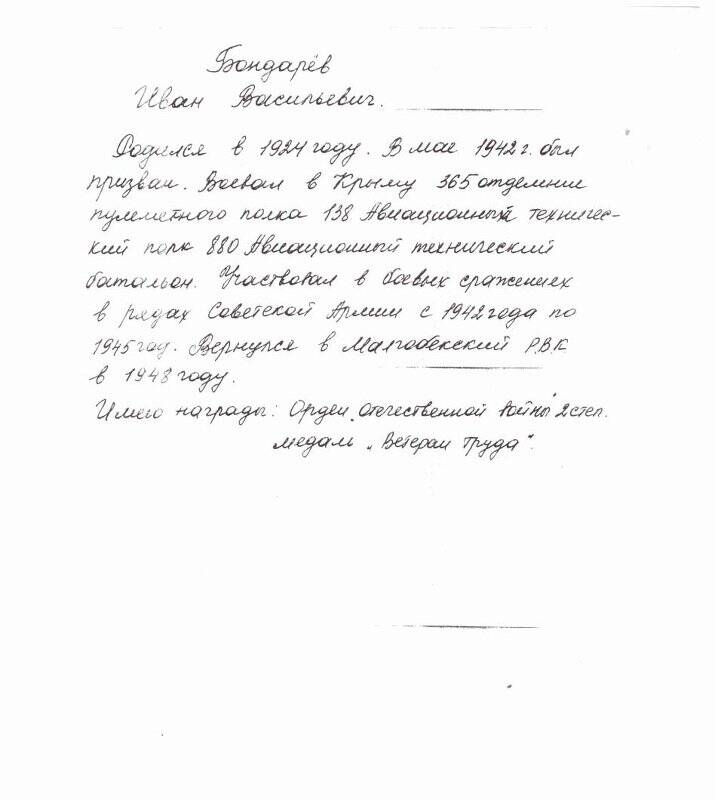 Бондарёв
Иван Васильевич.
Родился в 1924 году. В мае 1942 г. был
призван. Воевал в Крыму 365 отделении
пулеметного полка 138 Авиационный техничес-
кий полк 880 Авиационный технический
батальон. Участвовал в боевых сражениях
в рядах Советской Армии с 1942 года по
1945 год. Вернулся в Малгобекский Р.В.К
в 1948 году.
Имею награды: Орден „Отечественной Войны" 2 степ.
медаль „Ветеран труда".